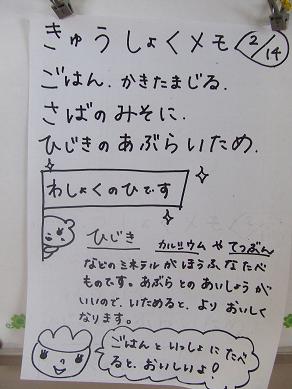 きゅうしょくメモ 2/14
ごはん.かきたまじる.
さばのみそに.
ひじきのあぶらいため.
わしょくのひです
ひじき カルシウムやてつぶん
などのミネラルがほうふなたべ
ものです。あぶらとのあいしょうが
いいので、いためると、よりおいしく
なります。
ごはんといっしょにたべ
ると、おいしいよ!